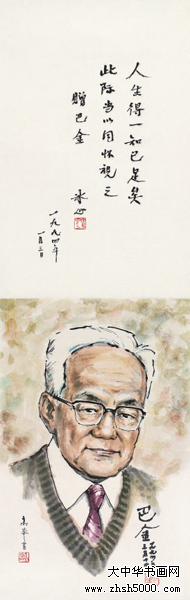 人生得一知己足矣
此际当以同怀视之
赠巴金
冰心
一九九四年
一月三日
巴金
一九九四
高莽画
大中华书画网
www.zhsh5000.com